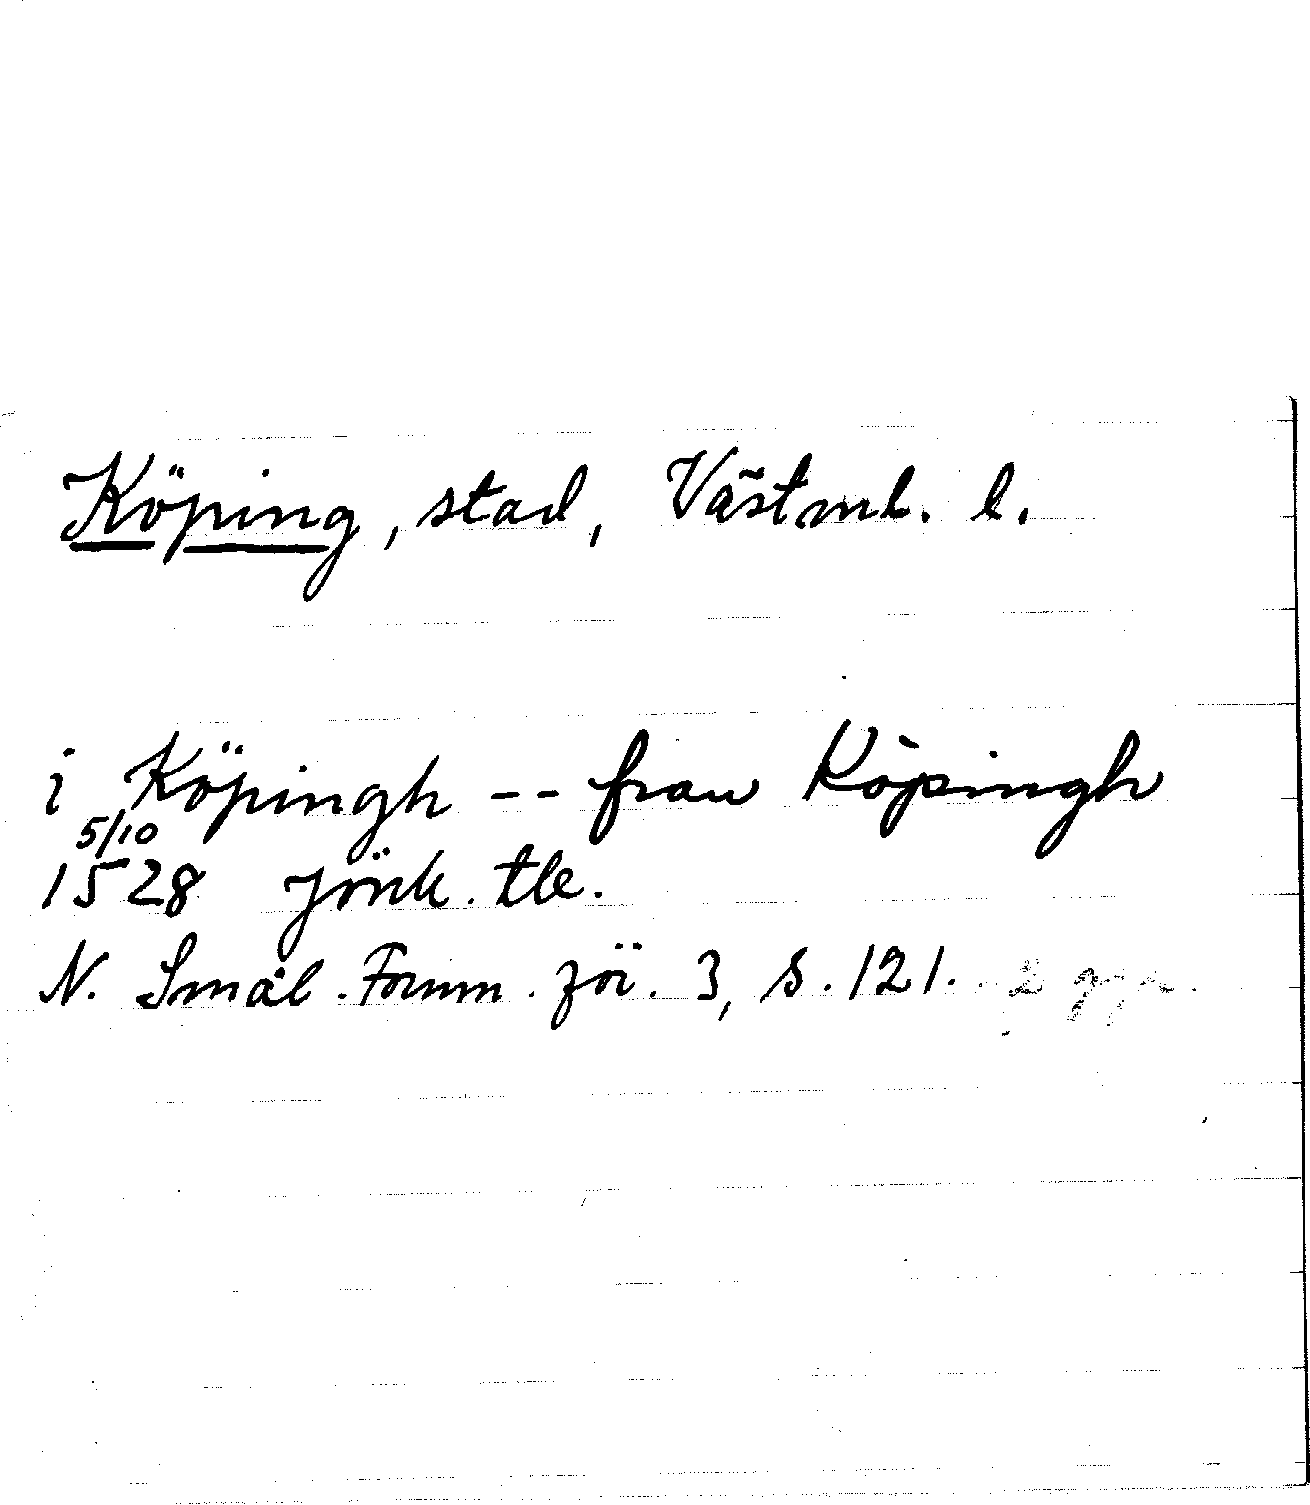 Köping, stad, Västml. l.
i Köpingh -- fran Köpingh
5/10
1528 Jönk. tb.
N. Smål. Fornm. för. 3, s. 121. 2 ggr.